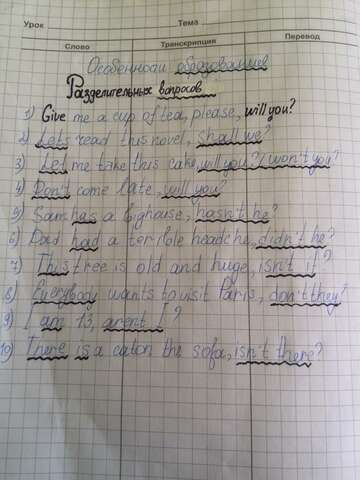 Урок Тема
Слово Транскрипция Перевод
Особенности образования
Разделительных вопросов
1) Give me a cup of tea, please, will you?
2) Lets read this novel, shall we?
3) Let me take this cake, will you?/won't you?
4) Don't come late, will you?
5) Sam has a big house, hasn't he?
6) Dad had a terrible headche, didn't he?
7) This tree is old and huge, isn't it?
8) Everybody wants to visit Paris, don't they?
9) I am 13, arent I?
10) There is a cat on the sofa, isn't there?